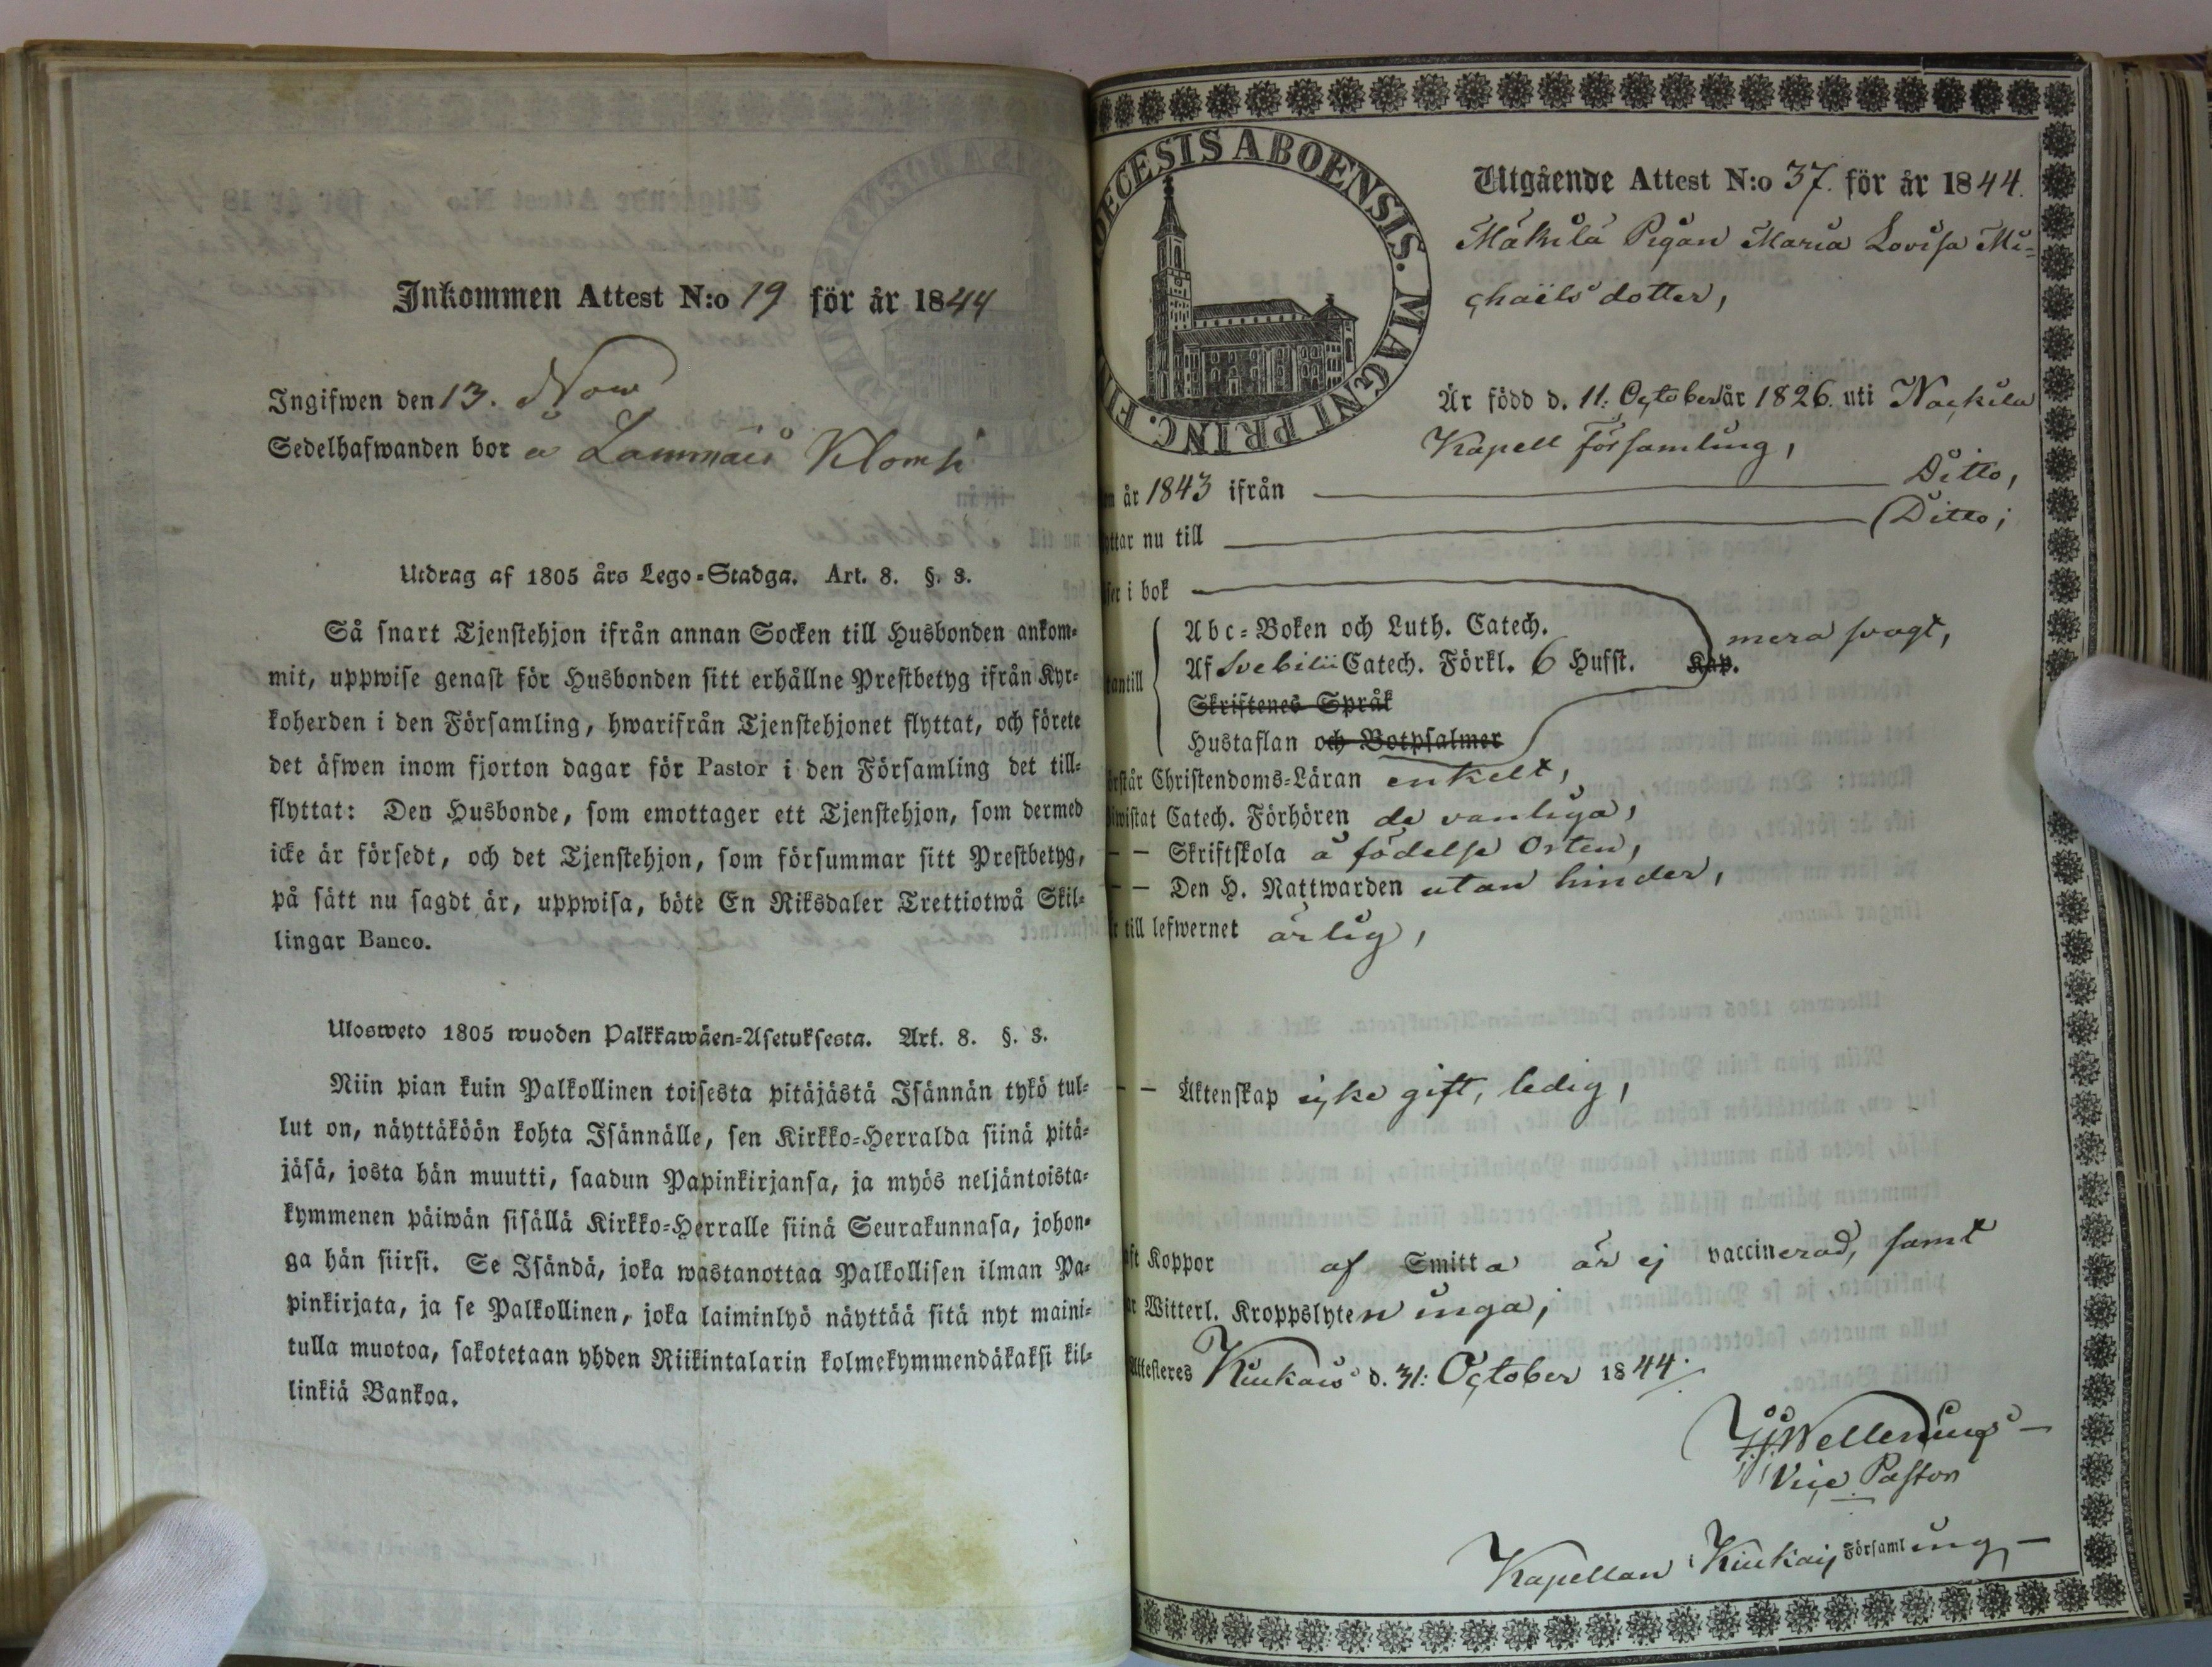 Inkommen Attest N:o 19 för år 1844
Ingifwen den 13. Nov
Sedelhafwanden bor å Lammais Klomsi
Utdrag af 1805 års Lego-Stadga. Art. 8. §. 3.
Så snart Tjenstehjon ifrån annan Socken till Husbonden ankom-
mit, uppwise genast för Husbonden sitt erhållne Prestbetyg ifrån Kyr-
koherden i den Församling, hwarifrån Tjenstehjonet flyttat, och förete
det äfwen inom fjorton dagar för Pastor i den Församling det till-
flyttat: Den Husbonde, som emottager ett Tjenstehjon, som dermed
icke är försedt, och det Tjenstehjon, som försummar sitt Prestbetyg,
på sätt nu sagdt är, uppwisa, böte En Riksdaler Trettiotwå Skil-
lingar Banco.
Ulosweto 1805 wuoden Palkkawäen-Asetuksesta. Art. 8. §. 3.
Niin pian kuin Palkollinen toisesta pitäjästä Isännän tykö tul-
lut on, näyttäköön kohta Isännälle, sen Kirkko-Herralda siinä pitä-
jäsä, josta hän muutti, saadun Papinkirjansa, ja myös neljäntoista-
kymmenen päiwän sisällä Kirkko-Herralle siinä Seurakunnasa, johon-
ga hän siirsi. Se Isändä, joka wastanottaa Palkollisen ilman Pa-
pinkirjata, ja se Palkollinen, joka laiminlyö näyttää sitä nyt maini-
tulla muotoa, sakotetaan yhden Riikintalarin kolmekymmendäkaksi kil-
linkiä Bankoa.
DECESIS ABOENSIS. MAGNI PRINC. FI
Utgående Attest N:o 37. för år 1844.
Mäkilä Pigan Maria Lovisa Mi-
chaëls dotter,
Är född d. 11. October år 1826. uti Nackila
Kapell församling,
år 1843 ifrån Ditto,
ttar nu till Ditto;
ser i bok
Abc-Boken och Luth. Catech. mera svagt,
antill Af Svebilii Catech. Förkl. 6 Hufst. Kap.
Skriftenes Språk
Hustaflan och Botpsalmer
rstår Christendoms-Läran enkelt,
wistat Catech. Förhören de vanliga,
— — Skriftskola å födelse Orten,
— — Den H. Nattwarden utan hinder,
till lefwernet ärlig,
— — Äktenskap icke gift, ledig,
ft Koppor af Smitta är ej vaccinerad, samt
r Witterl. Kroppslyten inga;
Attesteres Kiukais d. 31: October 1844.
Wellenius
Vice Pastor
Kapellan i Kiukais Församling